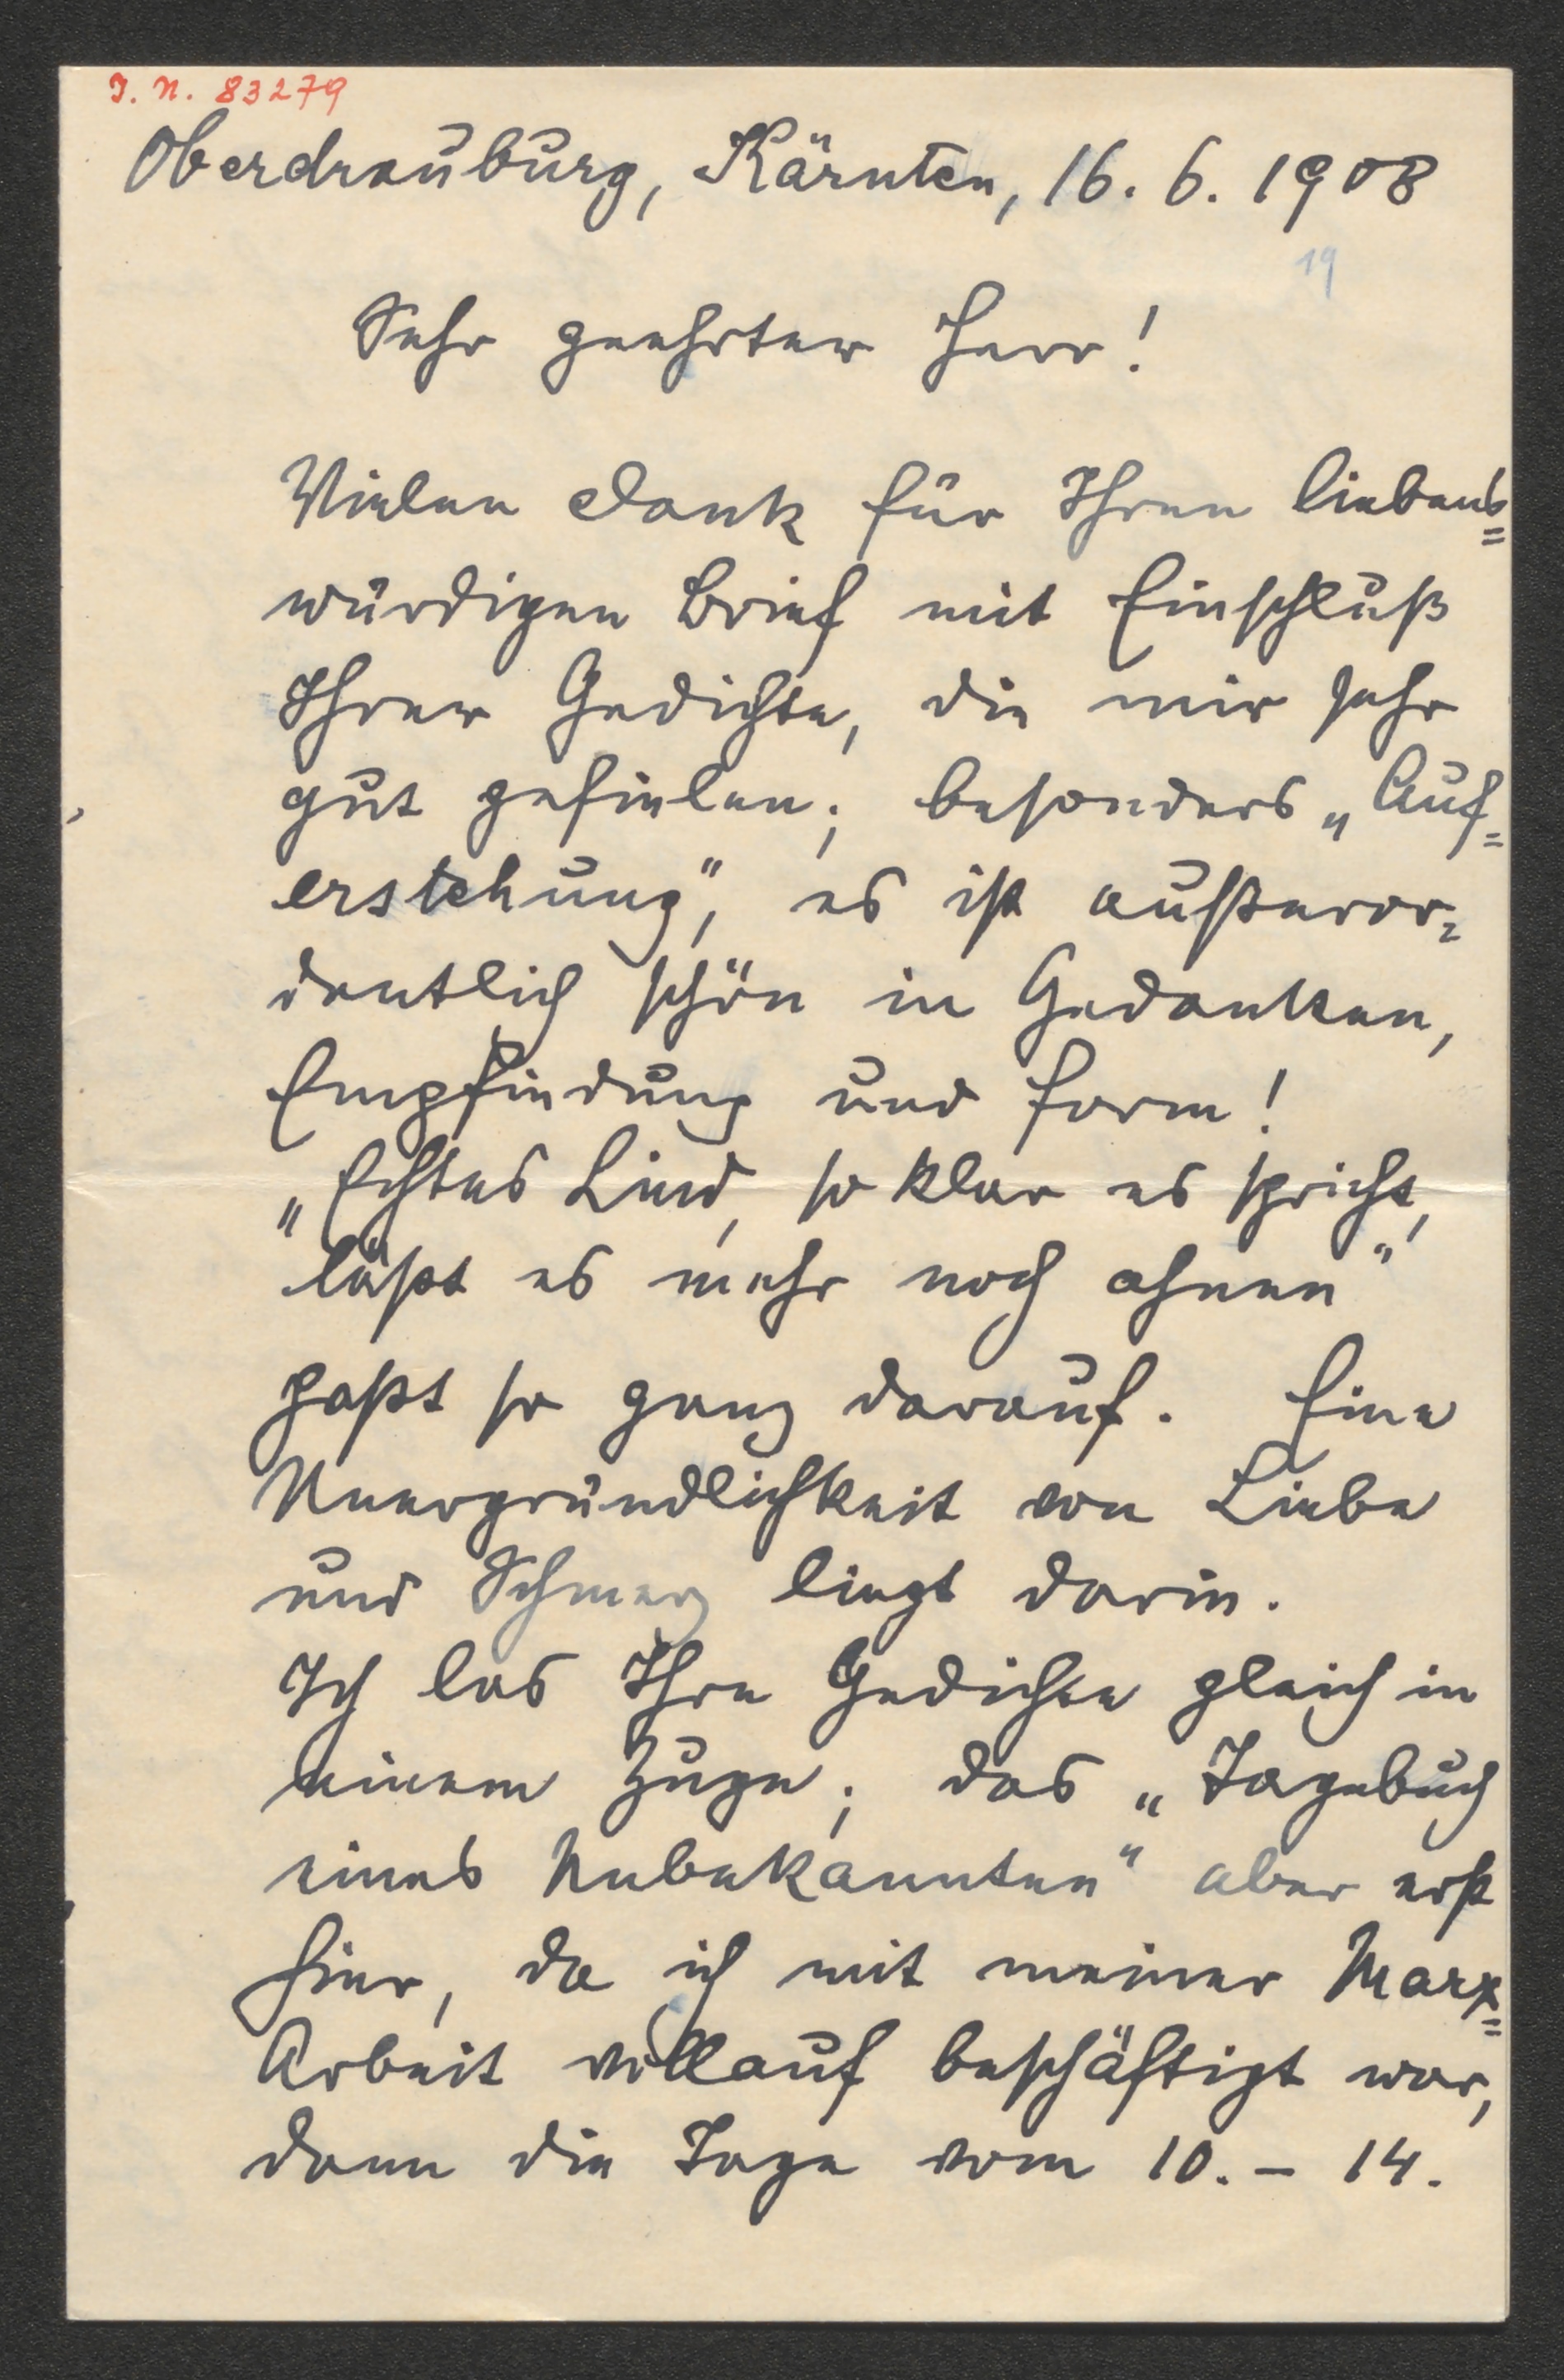 I. N. 83279
Oberdrauburg, Kärnten, 16. 6. 1908
19
Sehr geehrter Herr!
Vielen Dank für Ihren liebens=
würdigen Brief mit Einschluß
Ihrer Gedichte, die mir sehr
gut gefielen; besonders „Auf=
erstehung", es ist außeror=
dentlich schön in Gedanken,
Empfindung und Form!
„Echtes Lied, so klar es spricht,
läßt es mehr noch ahnen"
paßt so ganz darauf. Eine
Unergründlichkeit von Liebe
und Schmerz liegt darin.
Ich las Ihre Gedichte gleich in
einem Zuge; das „Tagebuch
eines Unbekannten" aber erst
hier, da ich mit meiner Marx=
Arbeit vollauf beschäftigt war,
dann die Tage vom 10. – 14.